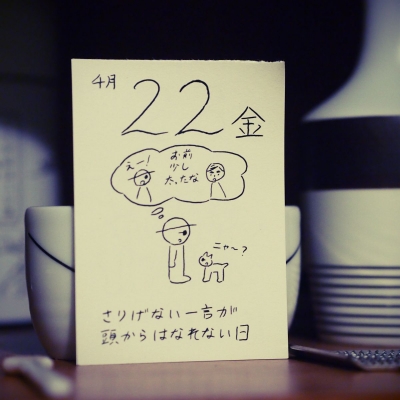 4月
22
金
えー!
お前
少し
太ったな
ニャ〜?
さりげない一言が
頭からはなれない日